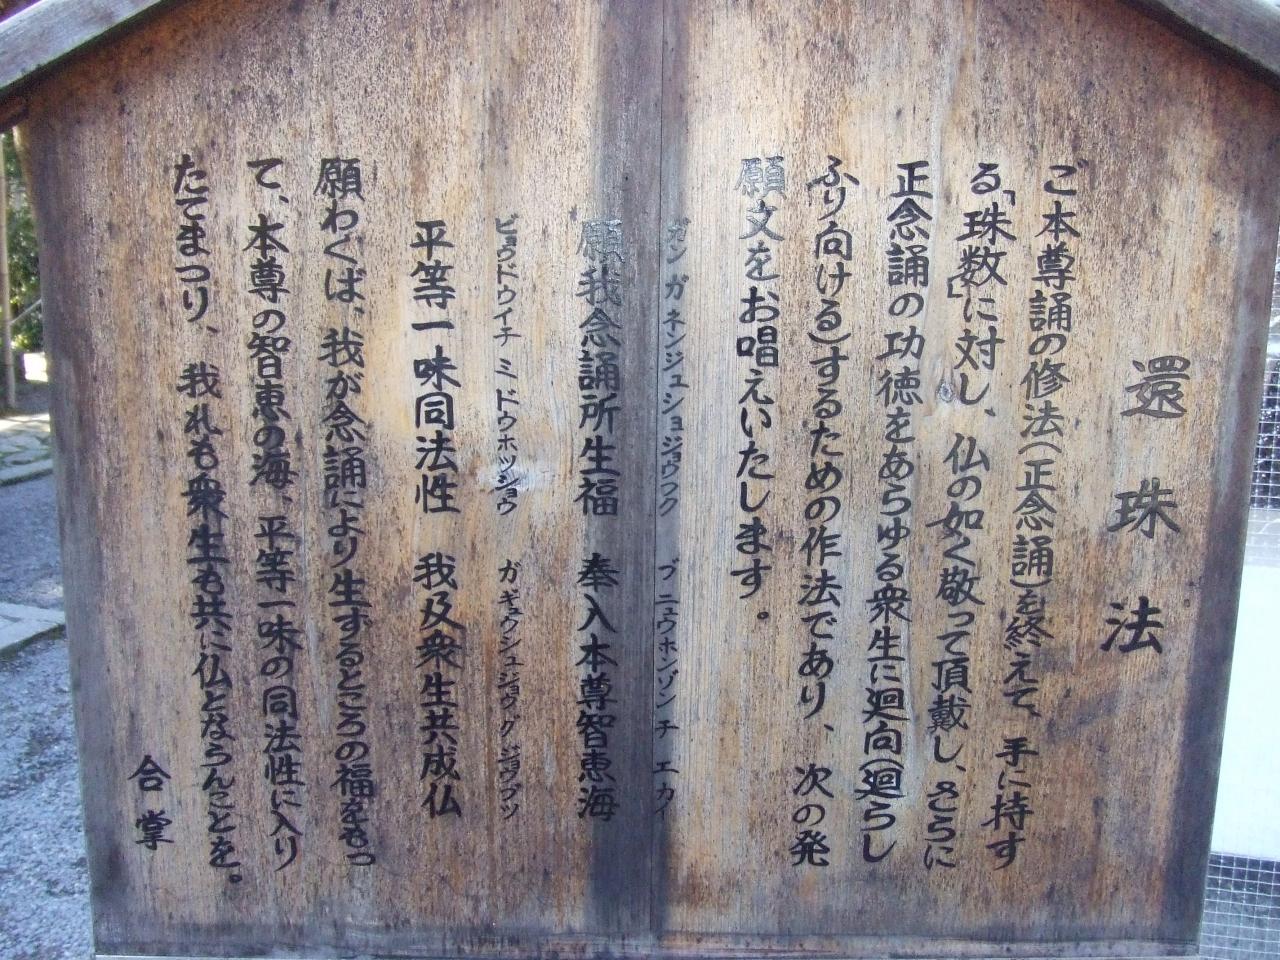 還珠法
ご本尊誦の修法(正念誦)を終えて、手に持す
る「珠数」に対し、仏の如く敬って頂戴し、さらに
正念誦の功徳をあらゆる衆生に廻向(廻らし
ふり向ける)するための作法であり、次の発
願文をお唱えいたします。
ガン ガネンジュショジョウフク ブニュウホンゾンチ エカイ
願我念誦所生福 奉入本尊智恵海
ビョウドウイチ ミ ドウホッショウ ガギュウシュジョウグ ジョウブツ
平等一味同法性 我及衆生共成仏
願わくば、我が念誦により生ずるところの福をもっ
て、本尊の智恵の海、平等一味の同法性に入り
たてまつり、我れも衆生も共に仏とならんことを。
合掌